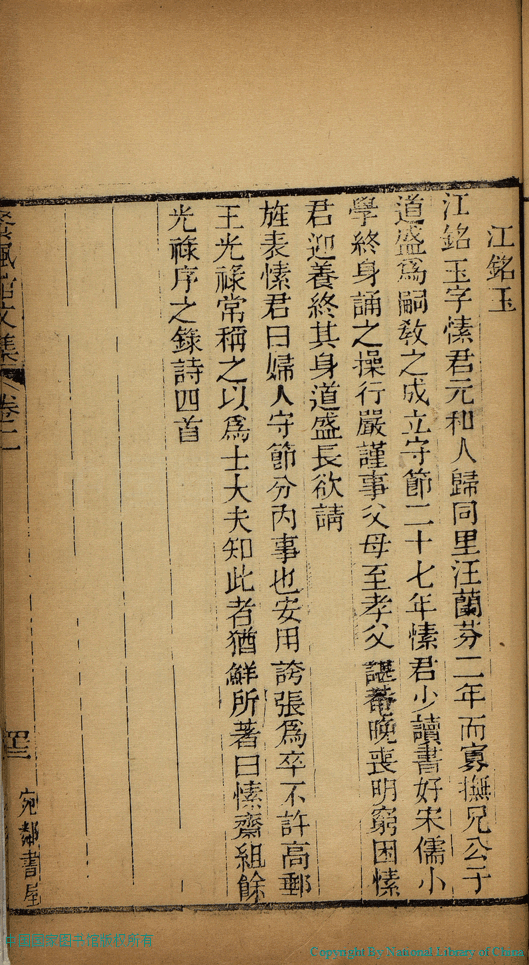 江銘玉
江銘玉字愫君元和人歸同里汪蘭芬二年而寡撫兄公子
道盛爲嗣教之成立守節二十七年愫君少讀書好宋儒小
學終身誦之操行嚴謹事父母至孝父諶菴晚喪明窮困愫
君迎養終其身道盛長欲請
旌表愫君曰婦人守節分內事也安用誇張爲卒不許高郵
王光祿常稱之以爲士大夫知此者猶鮮所著曰愫齋組餘
光祿序之錄詩四首
文集
卷二
宛鄰書屋
Copyright By National Library of China